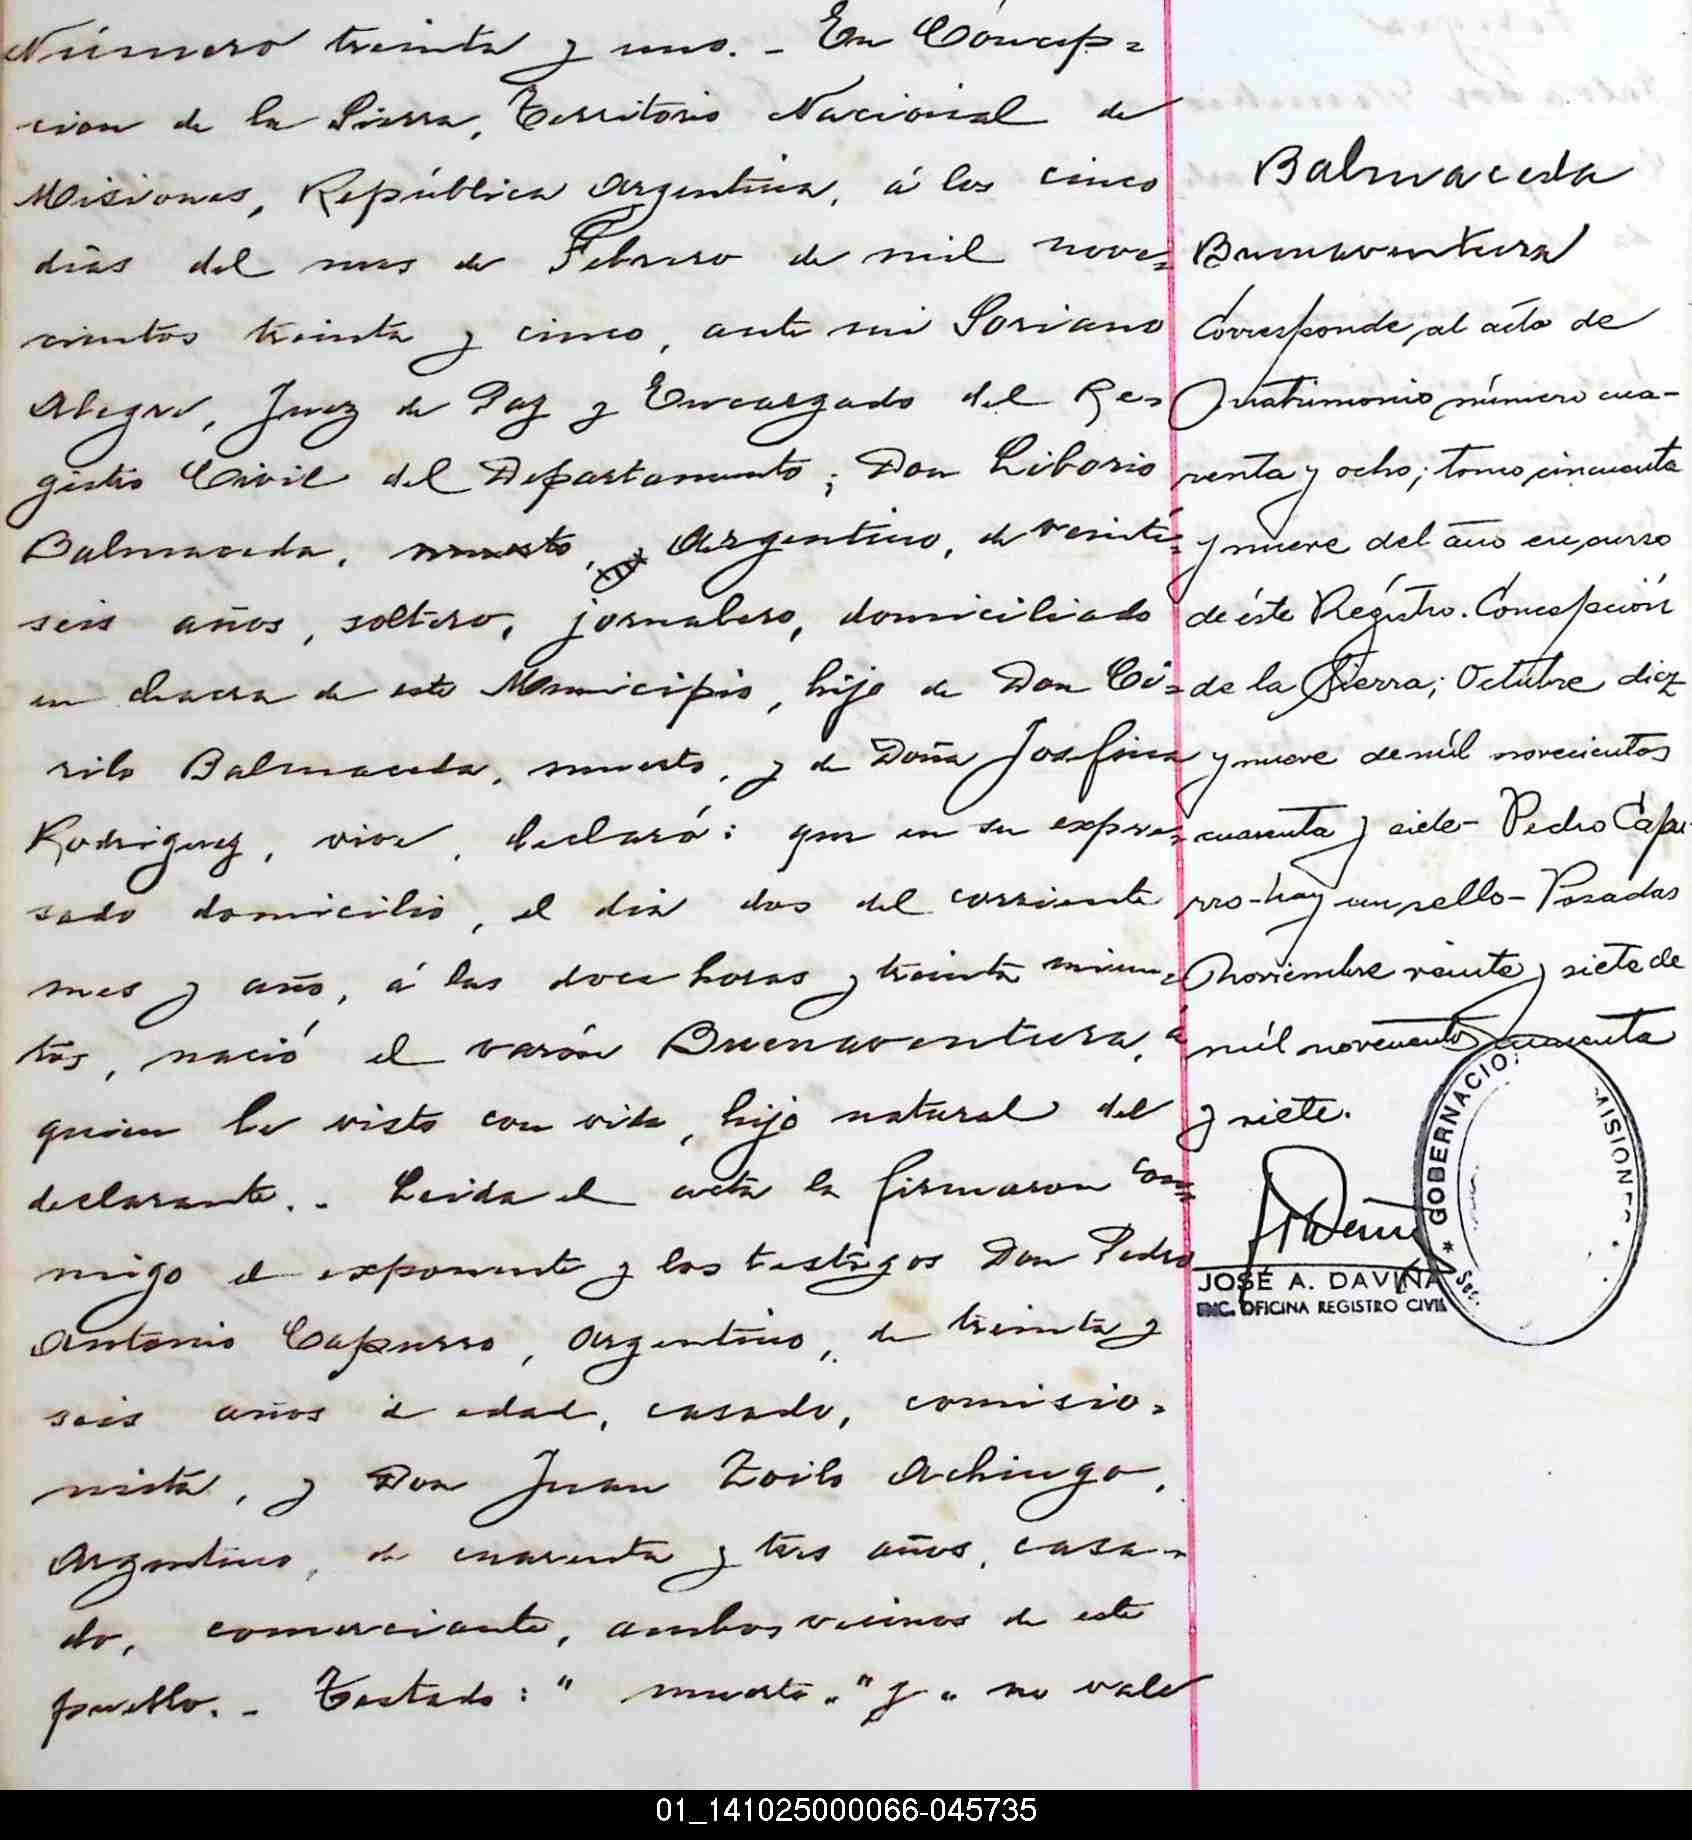 Número treinta y uno. - En Concep=
cion de la Sierra, Territorio Nacional de
Misiones, República Argentina, á los cinco
dias del mes de Febrero de mil nove=
cientos treinta y cinco, ante mi Soriano
Alegre, Juez de Paz y Encargado del Re=
gistro Civil del Departamento; Don Liborio
Balmaceda, muerto, y Argentino, de veinti=
seis años, soltero, jornalero, domiciliado
en chacra de este Municipio, hijo de Don Ci=
rilo Balmaceda, muerto, y de Doña Josefina
Rodriguez, vive, declaró: que en su expre=
sado domicilio, el dia dos del corriente
mes y año, á las doce horas y treinta minu=
tos, nació el varón Buenaventura, á
quien he visto con vida, hijo natural del
declarante. - Leida el acta la firmaron con=
migo el exponente y los testigos Don Pedro
Antonio Capurro, Argentino, de treinta y
seis años de edad, casado, comisio=
nista, y Don Juan Zoilo Achingo,
Argentino, de cuarenta y tres años, casa=
do, comerciante, ambos vecinos de este
pueblo. - Testado: " muerto " y " no vale
Balmaceda
Buenaventura
Corresponde al acta de
Matrimonio número cua-
renta y ocho; tomo cincuenta
y nueve del año en curso
de éste Régistro. Concepción
de la Sierra; Octubre diez
y nueve de mil novecientos
cuarenta y siete - Pedro Capu-
rro - hay un sello - Posadas
Noviembre veinte y siete de
mil novecientos cuarenta
y siete.
JOSÉ A. DAVIÑA
ENC. OFICINA REGISTRO CIVIL
* GOBERNACIO
MISIONES *
Sec.
01_141025000066-045735